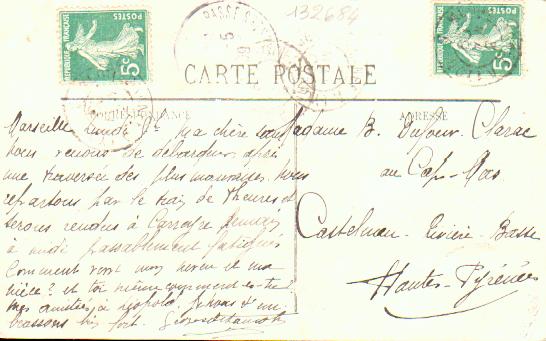 132684
RÉPUBLIQUE FRANÇAISE
POSTES
5c
RÉPUBLIQUE FRANÇAISE
POSTES
5c
CARTE POSTALE
CORRESPONDANCE
ADRESSE
Marseille lundi ma chère
nous venons de débarquer après
une traversée des plus mauvaises. nous
repartons par le train de 7 heures et
serons rendus à demain
à midi passablement fatigués
Comment vont mon neveu et ma
nièce? et toi même comment es-tu?
mes amitiés à Léopold. Je vous em-
brassons bien fort.
Madame B. Dufour-Clarac
au Cap-Mas
Castelnau-Rivière-Basse
Hautes-Pyrénées